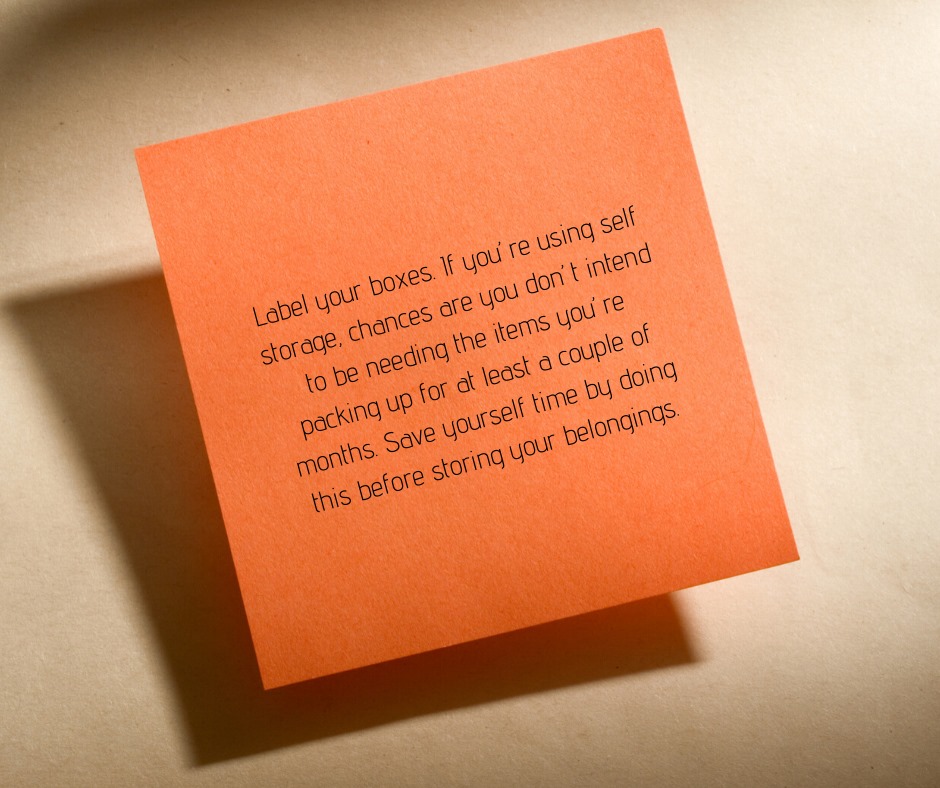 Label your boxes. If you're using self
storage, chances are you don't intend
to be needing the items you're
packing up for at least a couple of
months. Save yourself time by doing
this before storing your belongings.